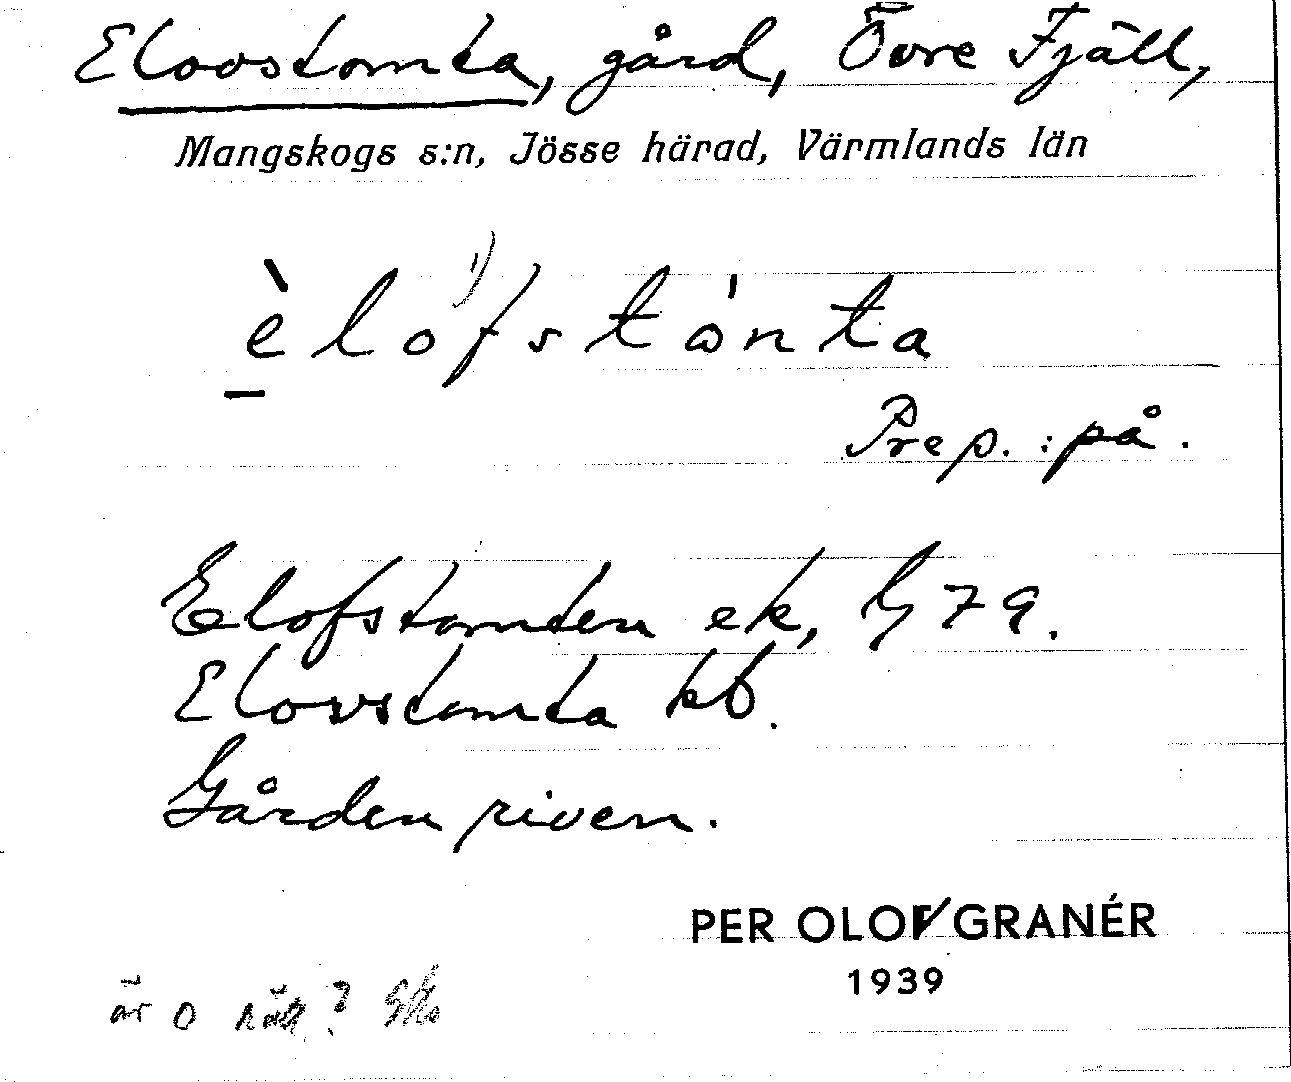 Elovstomta, gård, Övre Fjäll,
Mangskogs s:n, Jösse härad, Värmlands län
èlofstònta
1)
Prep.: på.
Elofstomten ek, G 79.
Elovstomta kb.
Gården riven.
PER OLOF GRANÉR
1939
är o rätt?